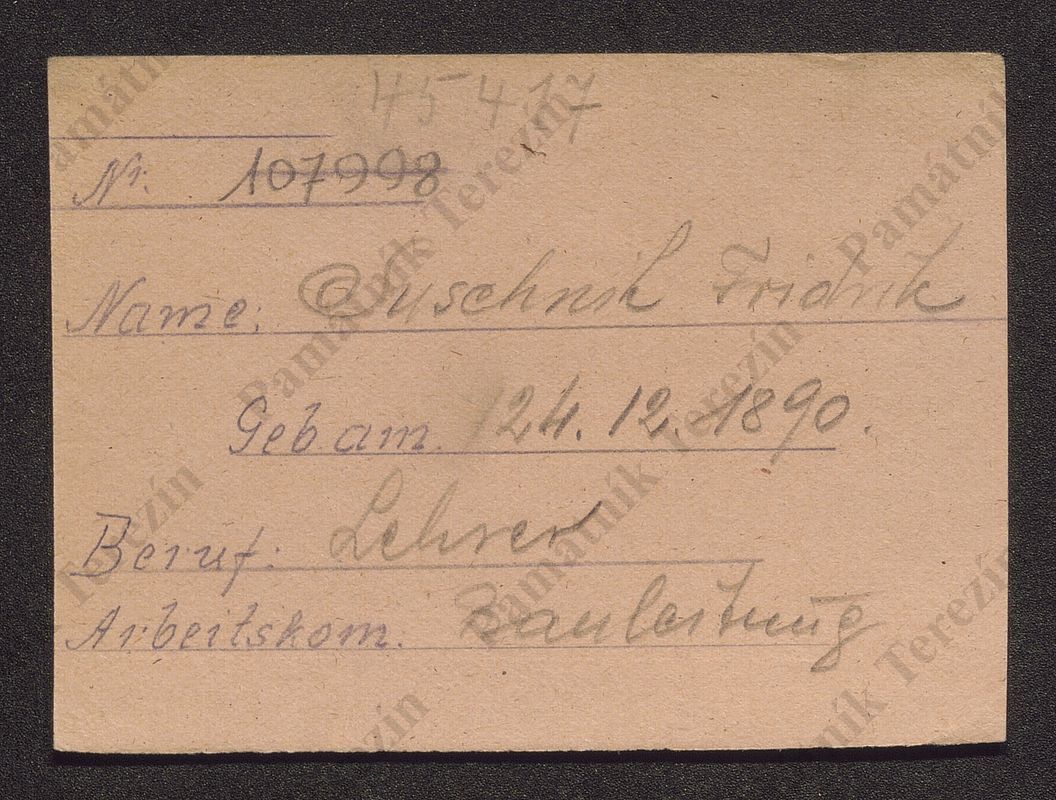 45417
Nr. 107998
Name: Puschnik Fridrik
Geb am. 24.12.1890.
Beruf: Lehrer
Arbeitskom. Bauleitung
Památník Terezín